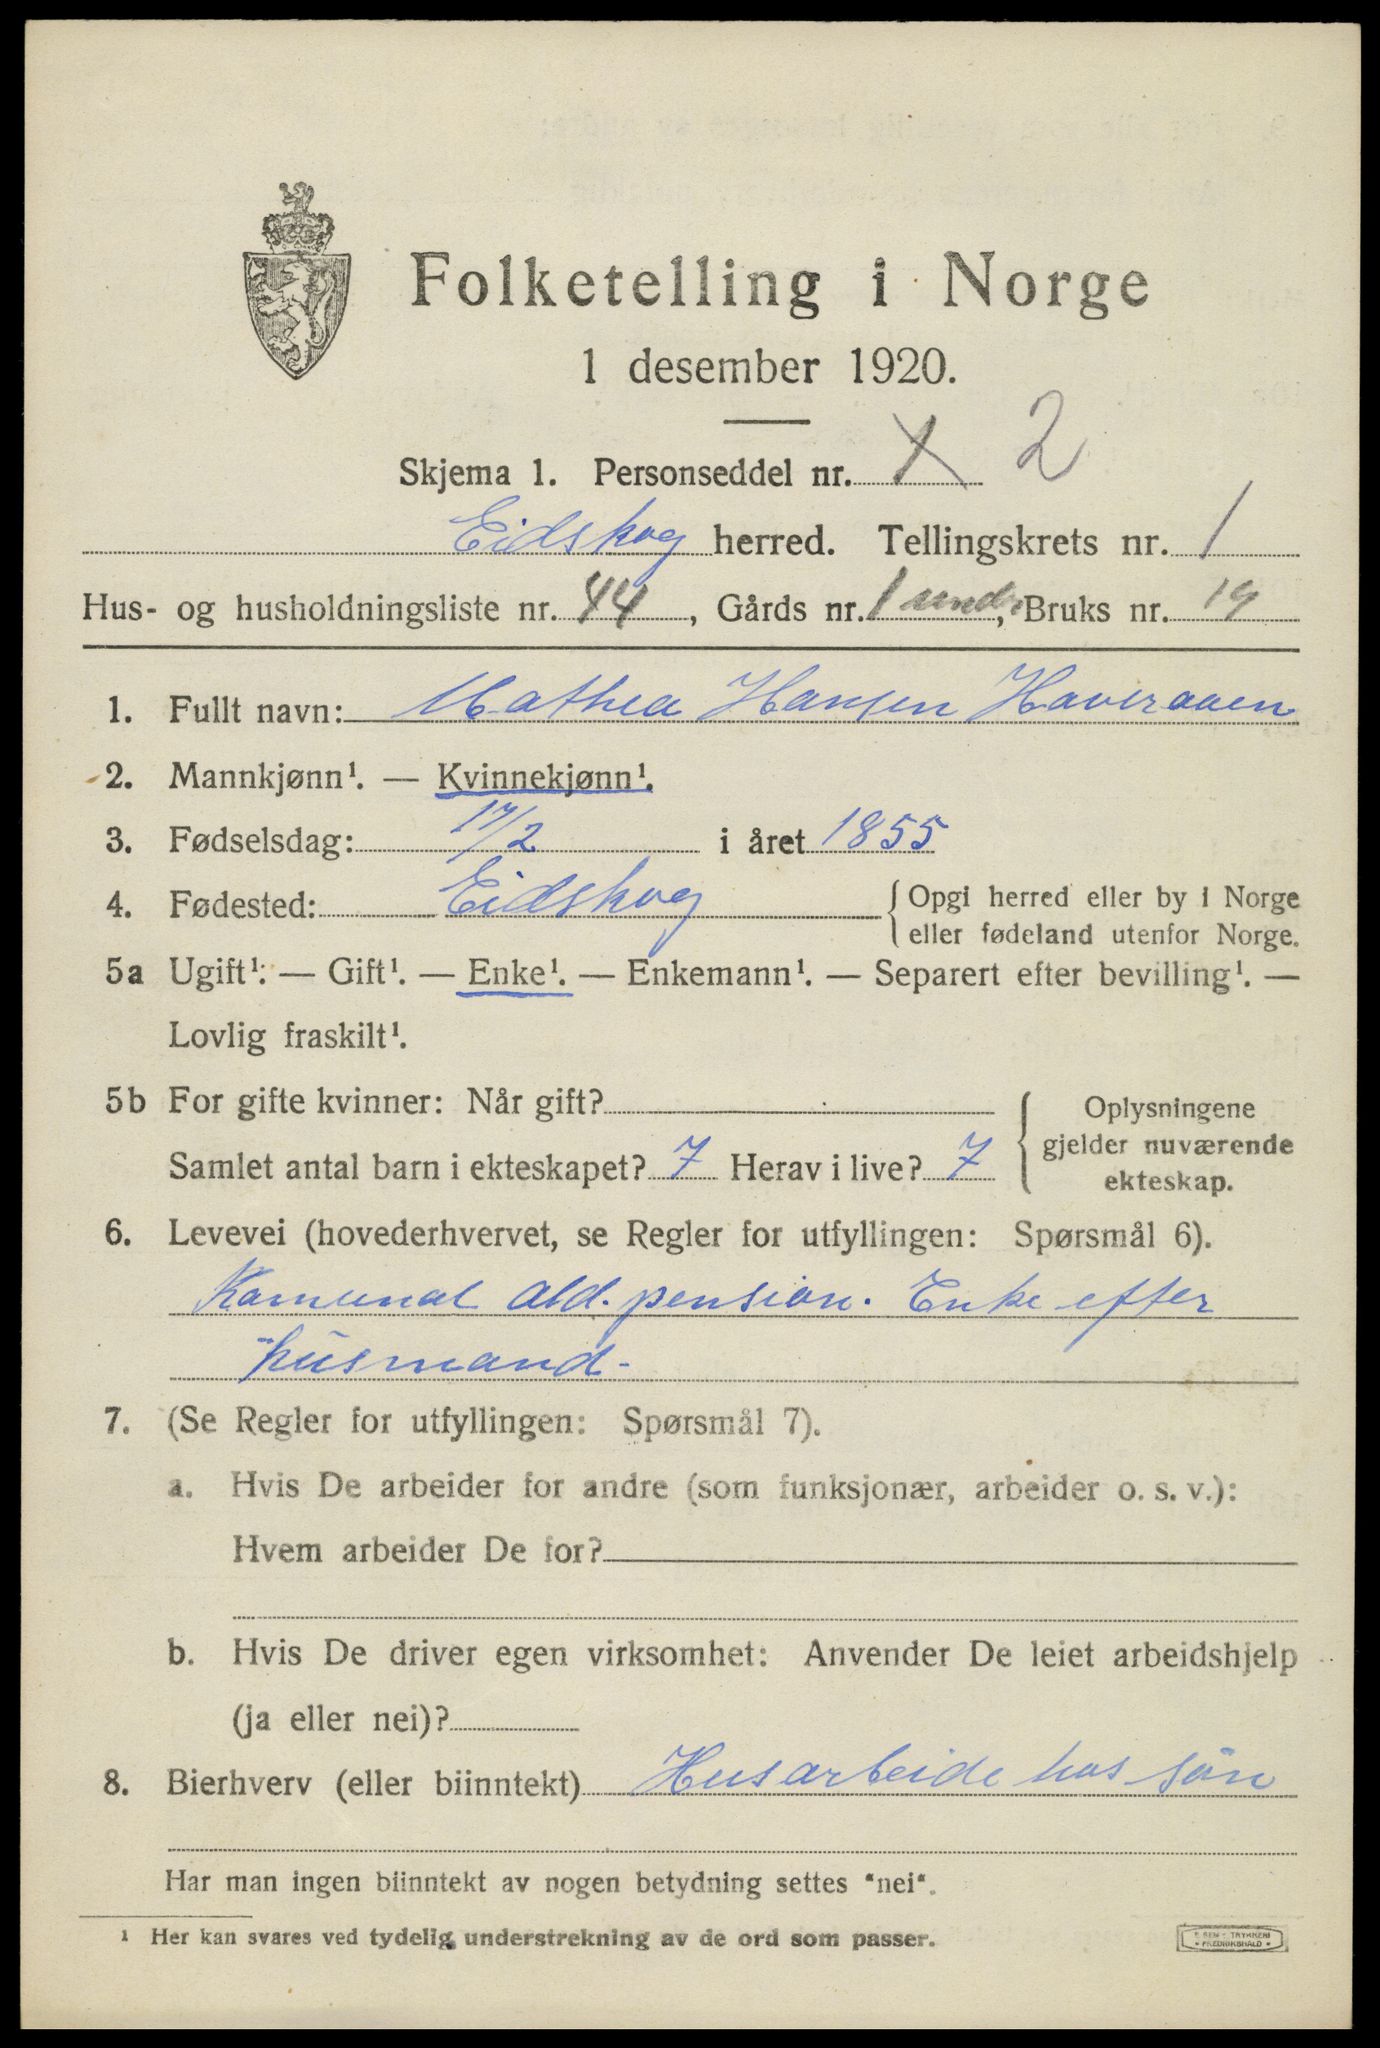 Folketelling i Norge
1 desember 1920.
Skjema 1. Personseddel nr. 1 2
Eidskog herred. Tellingskrets nr. 1
Hus- og husholdningsliste nr. 44, Gårds nr. 1 under, Bruks nr. 19
1. Fullt navn: Mathea Hansen Haveraaen
2. Mannkjønn¹. — Kvinnekjønn¹.
3. Fødselsdag: 17/2 i året 1855
4. Fødested: Eidskog { Opgi herred eller by i Norge
eller fødeland utenfor Norge.
5a Ugift¹. — Gift¹. — Enke¹. — Enkemann¹. — Separert efter bevilling¹. —
Lovlig fraskilt¹.
5b For gifte kvinner: Når gift?
Samlet antal barn i ekteskapet? 7 Herav i live? 7
{ Oplysningene
gjelder nuværende
ekteskap.
6. Levevei (hovederhvervet, se Regler for utfyllingen: Spørsmål 6).
Komunal ald. pension. Enke efter
husmand.
7. (Se Regler for utfyllingen: Spørsmål 7).
a. Hvis De arbeider for andre (som funksjonær, arbeider o. s. v.):
Hvem arbeider De for?
b. Hvis De driver egen virksomhet: Anvender De leiet arbeidshjelp
(ja eller nei)?
8. Bierhverv (eller biinntekt) Husarbeide hos søn
Har man ingen biinntekt av nogen betydning settes "nei".
¹ Her kan svares ved tydelig understrekning av de ord som passer.
TRYKKERI
FREDRIKSHALD